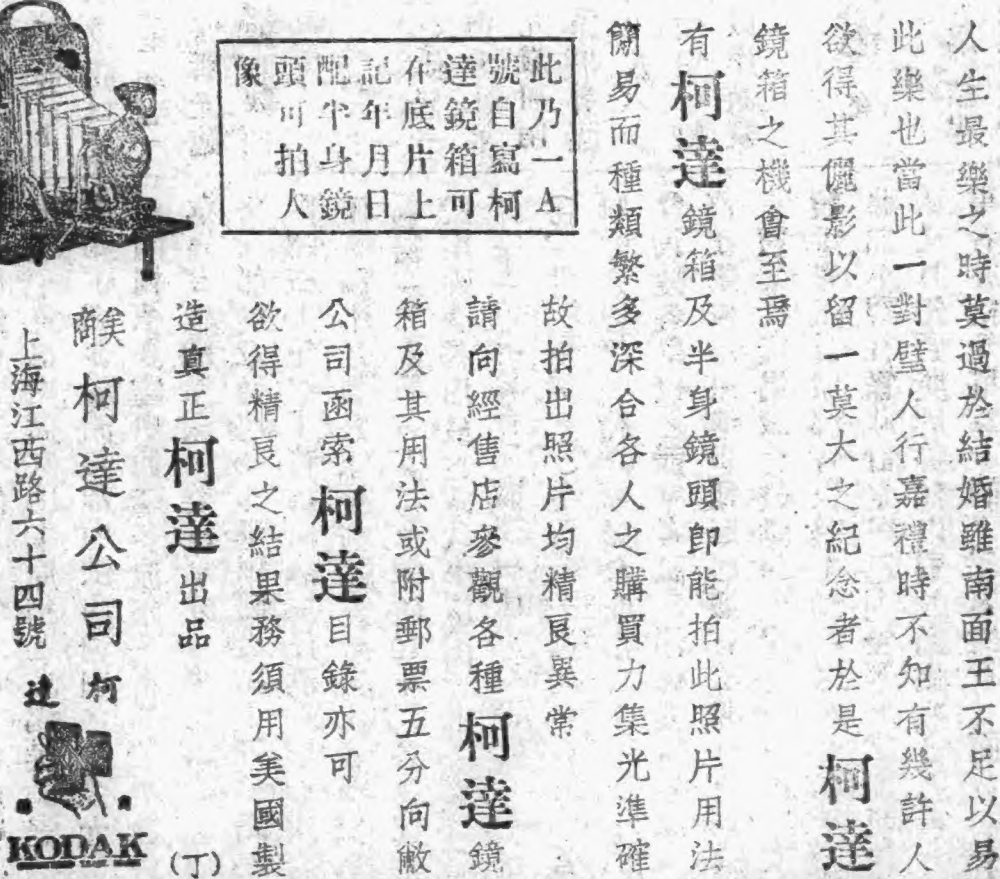 人生最樂之時莫過於結婚雖南面王不足以易
此樂也當此一對璧人行嘉禮時不知有幾許人
欲得其儷影以留一莫大之紀念者於是柯達
鏡箱之機會至焉
有柯達鏡箱及半身鏡頭即能拍此照片用法
簡易而種類繁多深合各人之購買力集光準確
故拍出照片均精良異常
請向經售店參觀各種柯達鏡
箱及其用法或附郵票五分向敝
公司函索柯達目錄亦可
欲得精良之結果務須用美國製
造真正柯達出品
此乃一A
號自寫柯
達鏡箱可
在底片上
記年月日
配半身鏡
頭可拍人
像
美商柯達公司
上海江西路六十四號
柯達
KODAK
(丁)